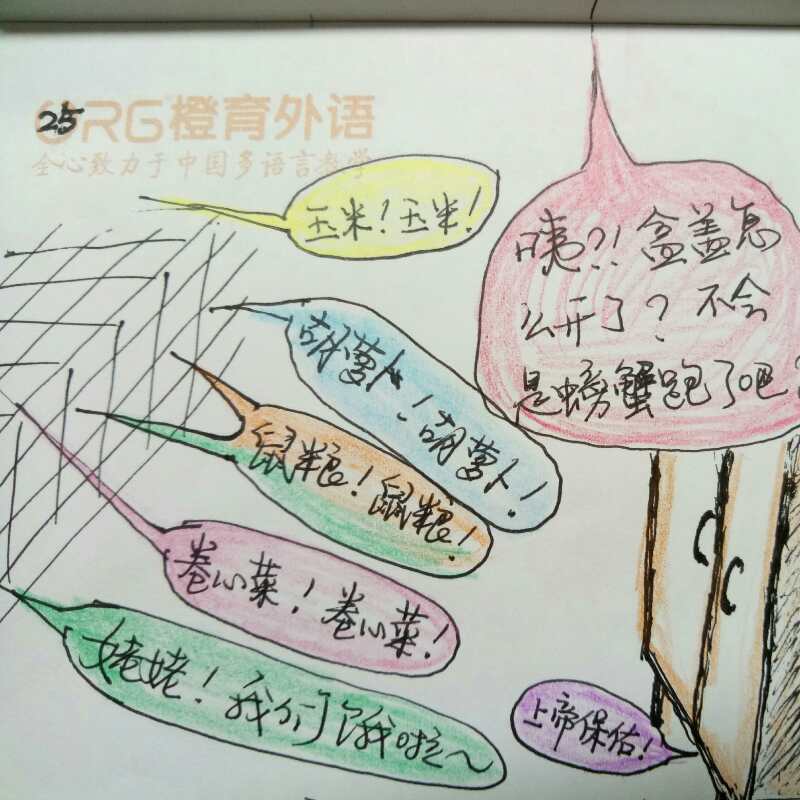 25
ORG橙育外语
全心致力于中国多语言教学
玉米!玉米!
咦?!盒盖怎
么开了?不会
是螃蟹跑了吧?
胡萝卜!胡萝卜!
鼠粮!鼠粮!
卷心菜!卷心菜!
姥姥!我们饿啦~
上帝保佑!